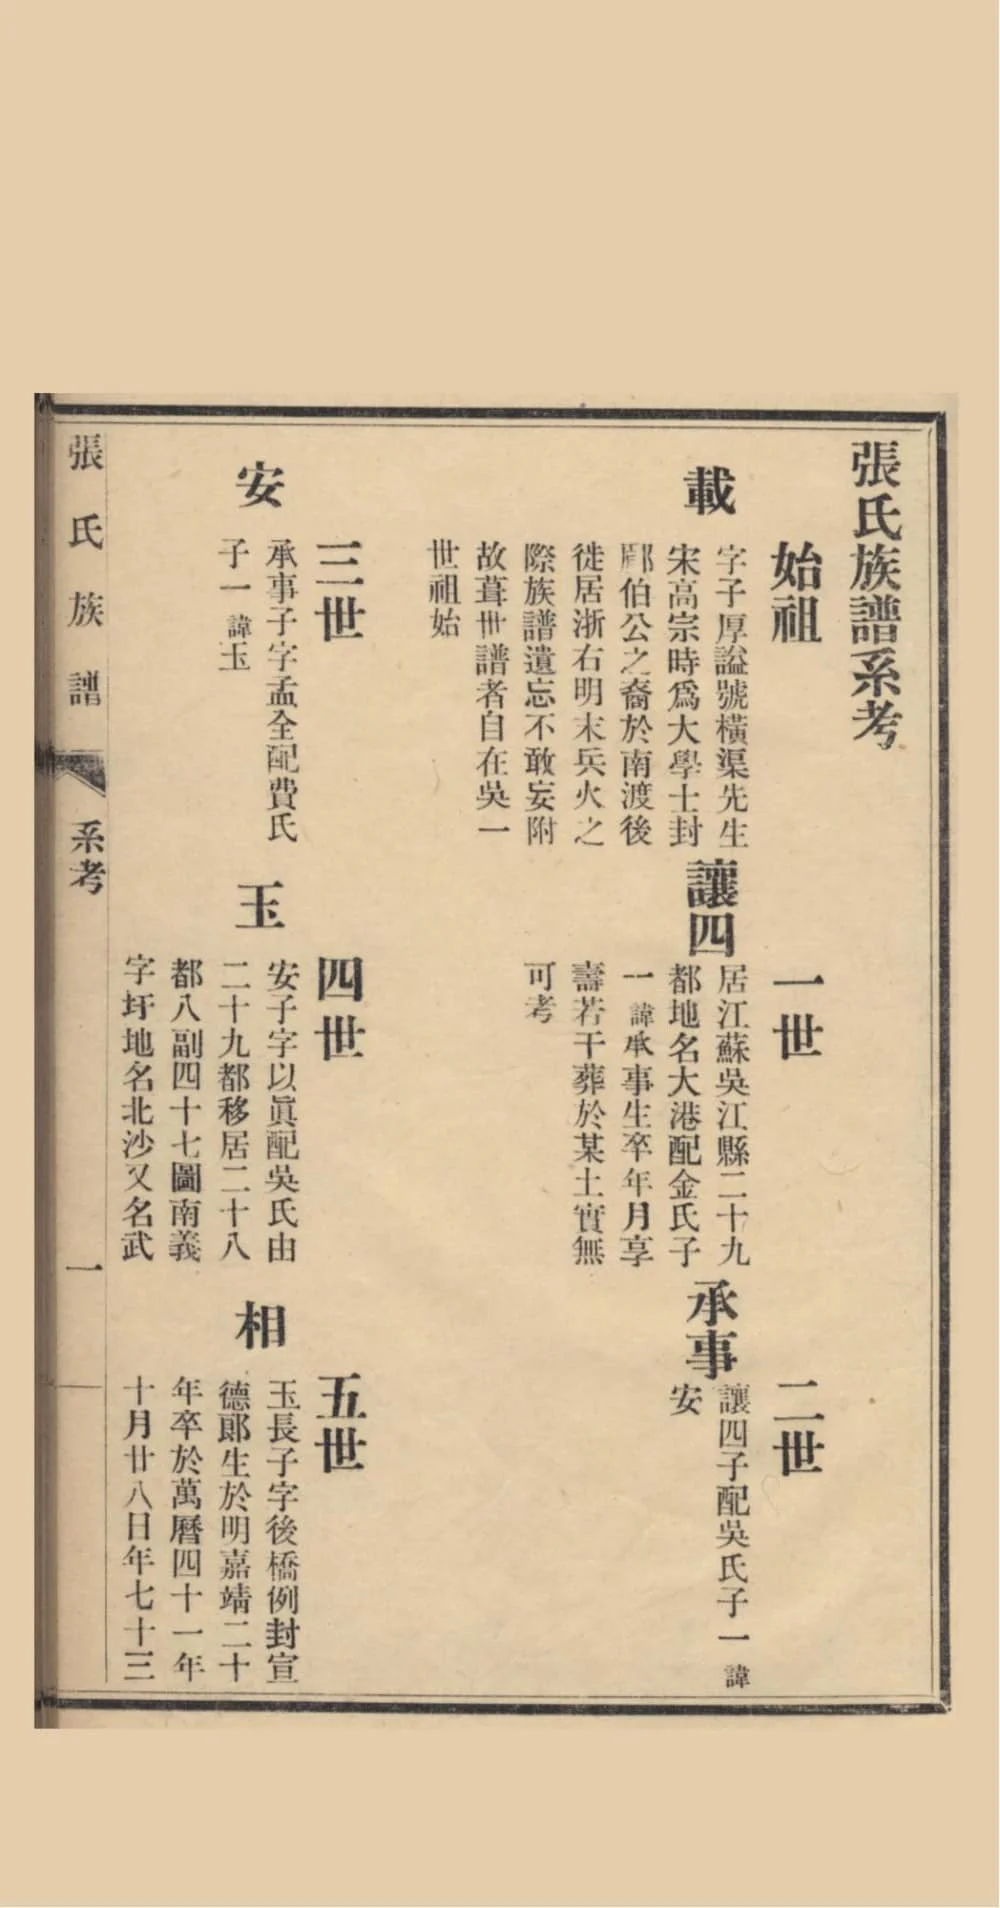 張氏族譜系考
始祖
載
字子厚謚號橫渠先生
宋高宗時爲大學士封
郿伯公之裔於南渡後
徙居浙右明末兵火之
際族譜遺忘不敢妄附
故葺世譜者自在吳一
世祖始
一世
讓四
居江蘇吳江縣二十九
都地名大港配金氏子
一諱承事生卒年月享
壽若干葬於某土實無
可考
二世
承事
讓四子配吳氏子一諱
安
三世
安
承事子字孟全配費氏
子一諱玉
四世
玉
安子字以眞配吳氏由
二十九都移居二十八
都八副四十七圖南義
字圩地名北沙又名武
五世
相
玉長子字後橋例封宣
德郞生於明嘉靖二十
年卒於萬曆四十一年
十月廿八日年七十三
張氏族譜 系考 一